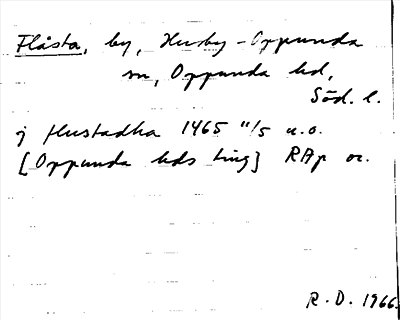 Flåsta, by, Husby-Oppunda
sn, Oppunda hd,
Söd. l.
j flustadha 1465 11/5 u.o.
[Oppunda hds ting] RAp or.
R.D. 1966.